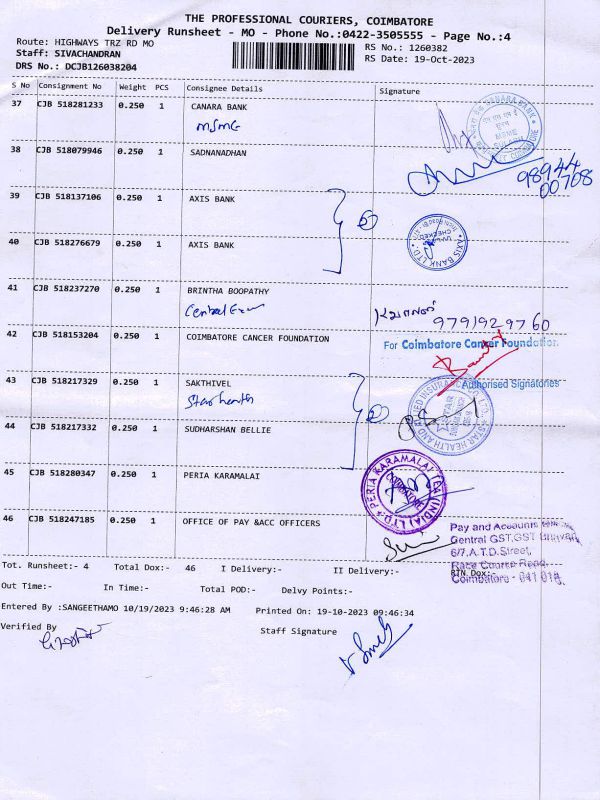 THE PROFESSIONAL COURIERS, COIMBATORE
Delivery Runsheet - MO - Phone No.:0422-3505555 - Page No.:4
Route: HIGHWAYS TRZ RD MO
RS No.: 1260382
Staff: SIVACHANDRAN
RS Date: 19-Oct-2023
DRS No.: DCJB126038204
S No Consignment No Weight PCS Consignee Details Signature
37 CJB 518281233 0.250 1 CANARA BANK
MSME
38 CJB 518079946 0.250 1 SADNANADHAN
98944
00708
39 CJB 518137106 0.250 1 AXIS BANK
40 CJB 518276679 0.250 1 AXIS BANK
AXIS BANK LTD.
41 CJB 518237270 0.250 1 BRINTHA BOOPATHY
Central
9791929760
42 CJB 518153204 0.250 1 COIMBATORE CANCER FOUNDATION
For Coimbatore Cancer Foundation
Authorised Signatories
43 CJB 518217329 0.250 1 SAKTHIVEL
Star health
STAR HEALTH AND ALLIED INSURANCE CO. LTD.
44 CJB 518217332 0.250 1 SUDHARSHAN BELLIE
45 CJB 518280347 0.250 1 PERIA KARAMALAI
PERIA KARAMALAI TEA (INDIA) LTD.
COIMBATORE
46 CJB 518247185 0.250 1 OFFICE OF PAY &ACC OFFICERS
Pay and Accounts
Central GST,GST Bhavan
6/7,A.T.D.Street,
Race Course Road,
Coimbatore - 641 018.
Tot. Runsheet:- 4 Total Dox:- 46 I Delivery:- II Delivery:- RTN Dox:-
Out Time:- In Time:- Total POD:- Delvy Points:-
Entered By :SANGEETHAMO 10/19/2023 9:46:28 AM Printed On: 19-10-2023 09:46:34
Verified By
Staff Signature